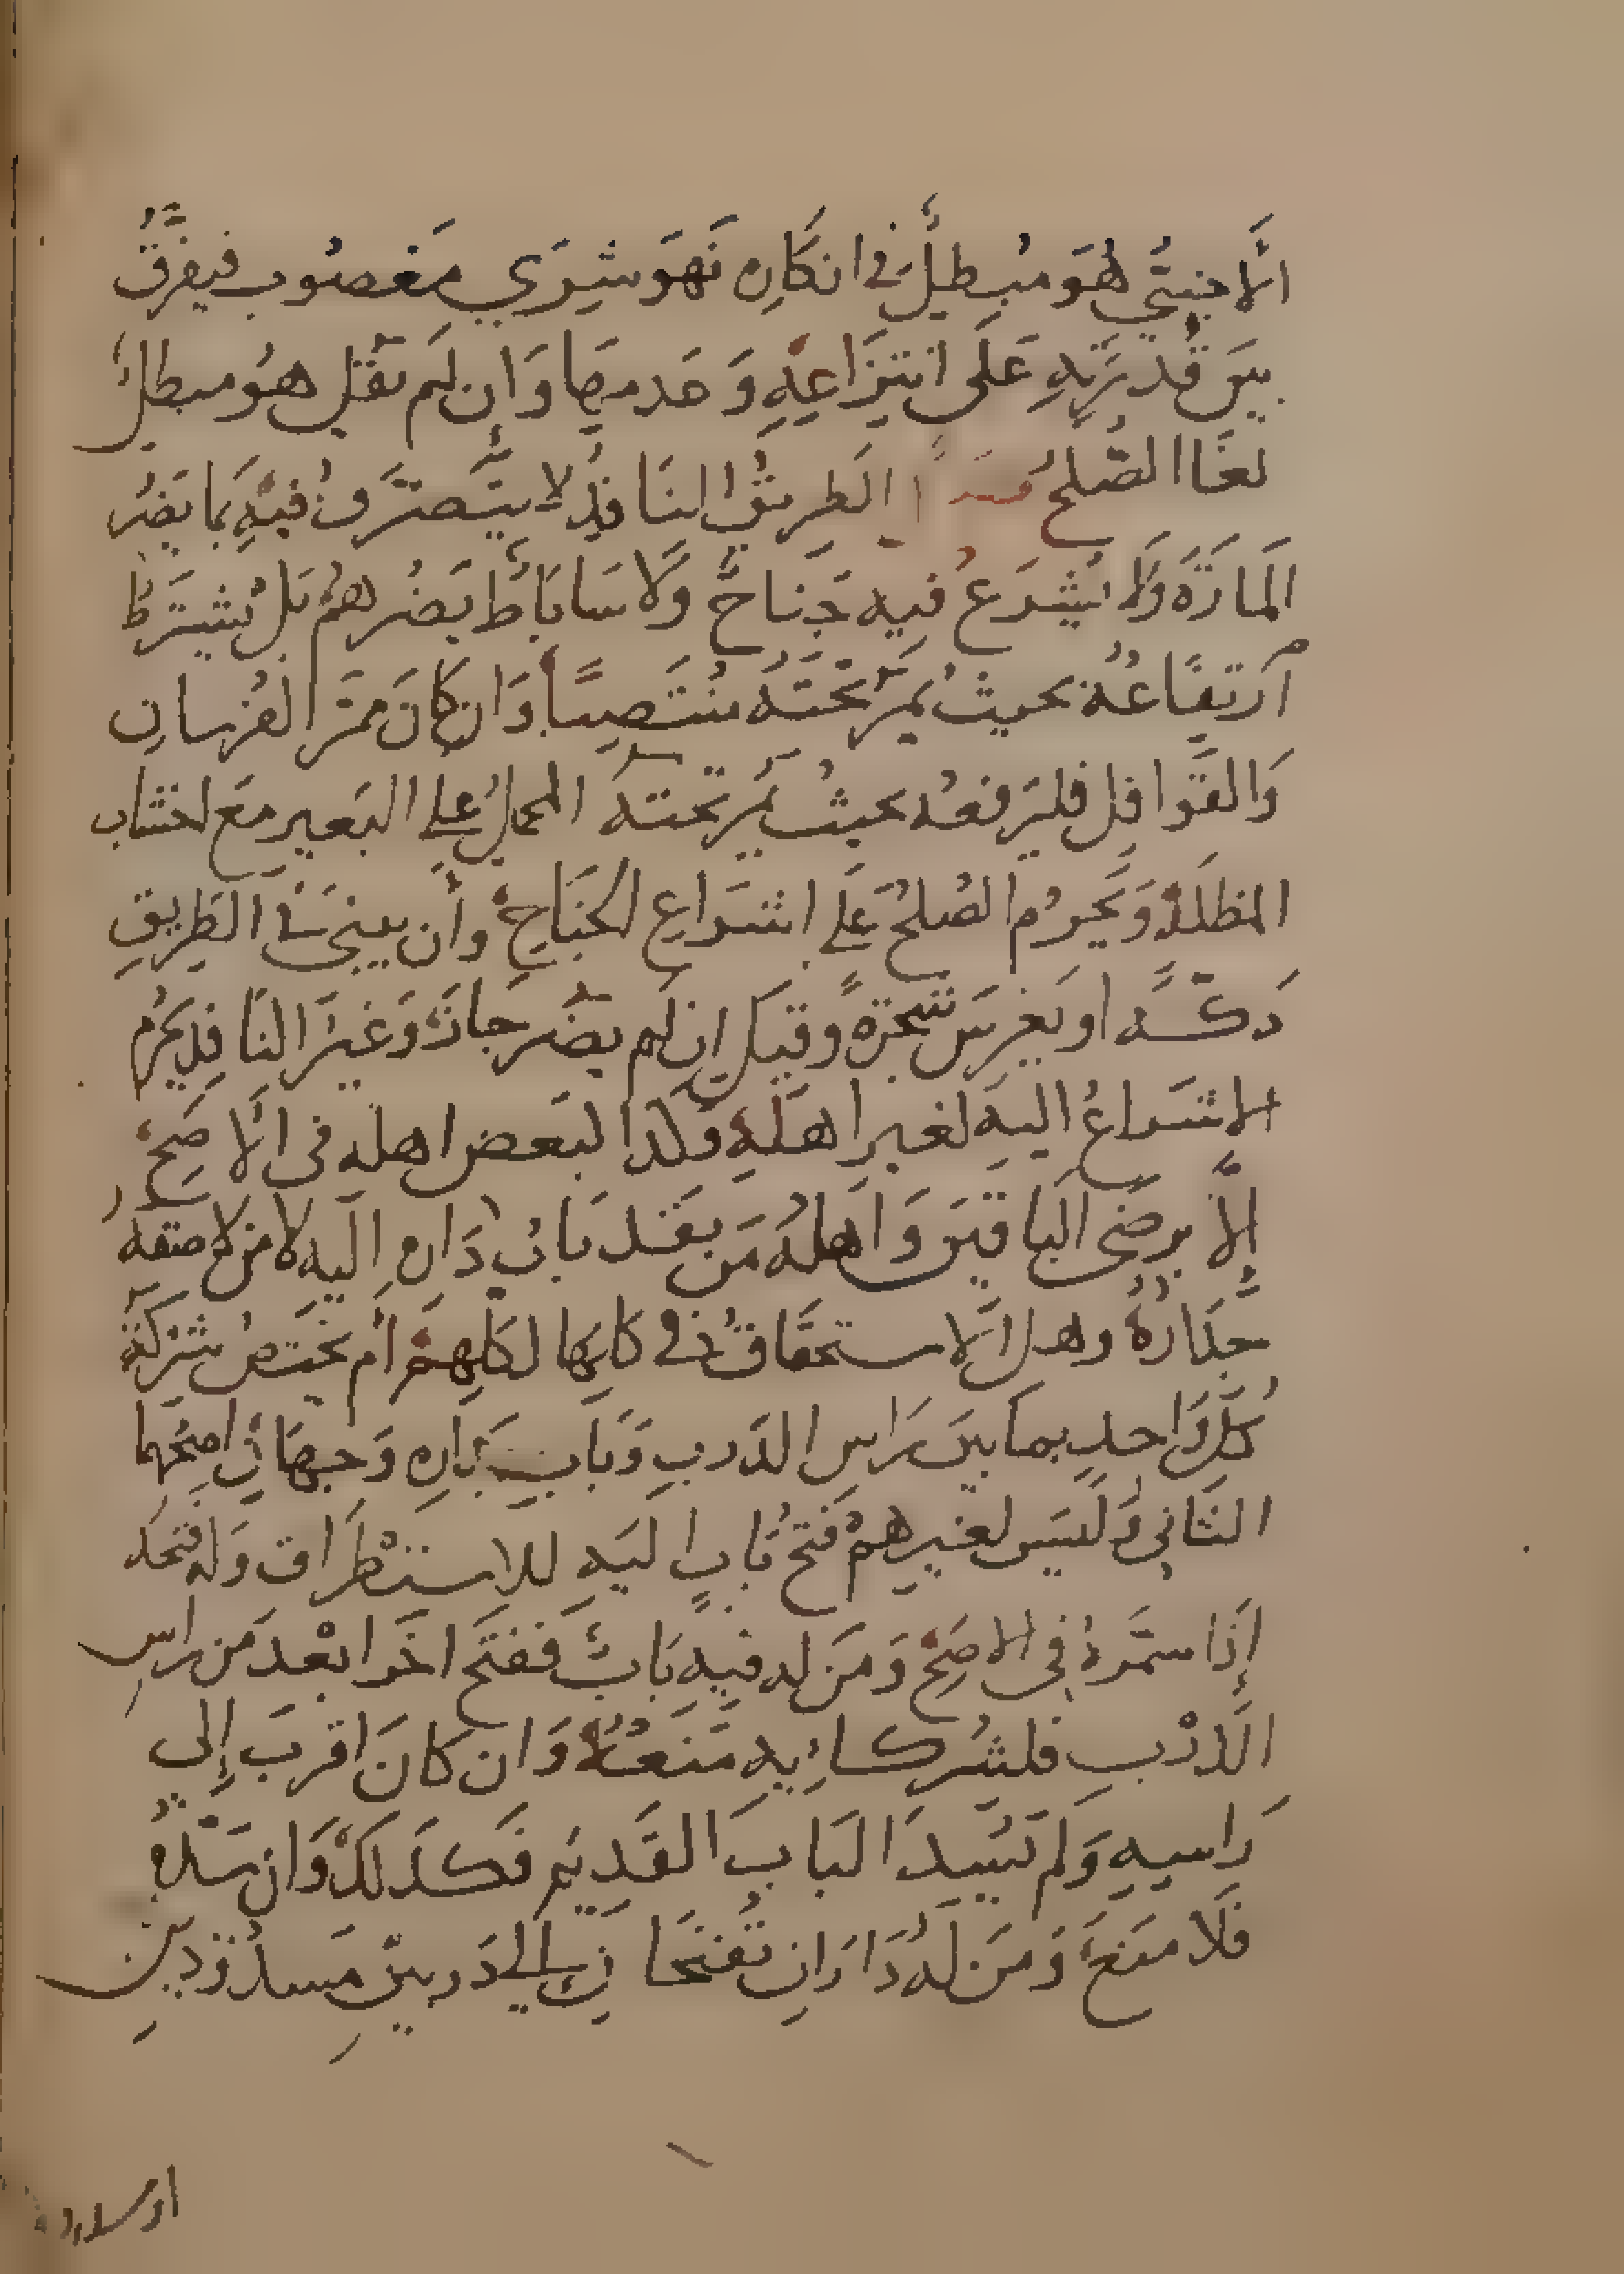 الاجنبيُّ هُوَ مُبطِلٌ في انكاره فهوَ شِرَي مَغصُوب فيفرَّقُ
بينَ قُدرَتِهِ عَلَى انتِزَاعِهِ وَعَدمهَا وَان لَم يَقُل هُوَ مبطلٌ
لغَا الصُّلحُ فصل الطَرِيقُ النَافِذُ لا يُتَصَرَّفُ فيهِ بما يَضُر
المَارَّةَ وَلا يُشرَعُ فيه جَناحٌ وَلَا سَابَاطٌ يَضُرهُمْ بَل يُشتَرَطُ
ارتِفَاعُهُ بحيثُ يَمُرُّ تَحْتَهُ مُنْتَصِبًا وَان كَانَ مَمَرَّ الفُرسانِ
وَالقَوافِل فليَرفعْهُ بحيثُ يَمُر تحتَهُ المحمِلُ عَلَى البَعيرِ مَع اخشاب
المظلة وَيَحرُم الصُلحُ عَلَى اشرَاعِ الجَنَاحِ وأن يبنيَ في الطَرِيقِ
دَكّة او يَغرِسَ شَجَرَةً وقيلَ ان لَم يضُر جَازَ وَغيرُ النَافِذِ يَحرُم
الاشرَاعُ اليهِ لغيرِ اهلهِ وكذا لبَعض اهلِهِ في الأصَحِّ
إلَّا برِضَى البَاقينَ وَاهلُهُ مَن نَفَذ بَابُ دَاره اليه لا مَن لاصَقَهُ
جِدَارُهُ وهل الاستحقَاقُ في كلِّها لكلّهمْ أم يختَصُّ شَرِكَةُ
كلِّ وَاحدٍ بمَا بينَ رَاسِ الدَرب وَبَاب دَارِهِ وَجهانِ اصحُّهما
الثَّاني وَلَيسَ لغيرِهِمْ فَتحُ بَابٍ اليَهِ للاستِطْرَاق وَله فتحُه
إذَا سمَّرهُ في الاصَحِّ وَمَن له فيهِ بَابٌ ففتَحَ اخَرَ ابعْدَ مَن راسِ
الدَرْبِ فلشُركائِهِ مَنعُهُ وَان كَانَ اقرَبَ إلى
رَاسِهِ وَلم يَسُدَّ البَابَ القَدِيمَ فكذلكَ وَان سَدَّهُ
فَلا مَنعَ وَمَن لَهُ دَارَانِ تُفتحَان إلى دَربَينِ مَسدُودَينِ